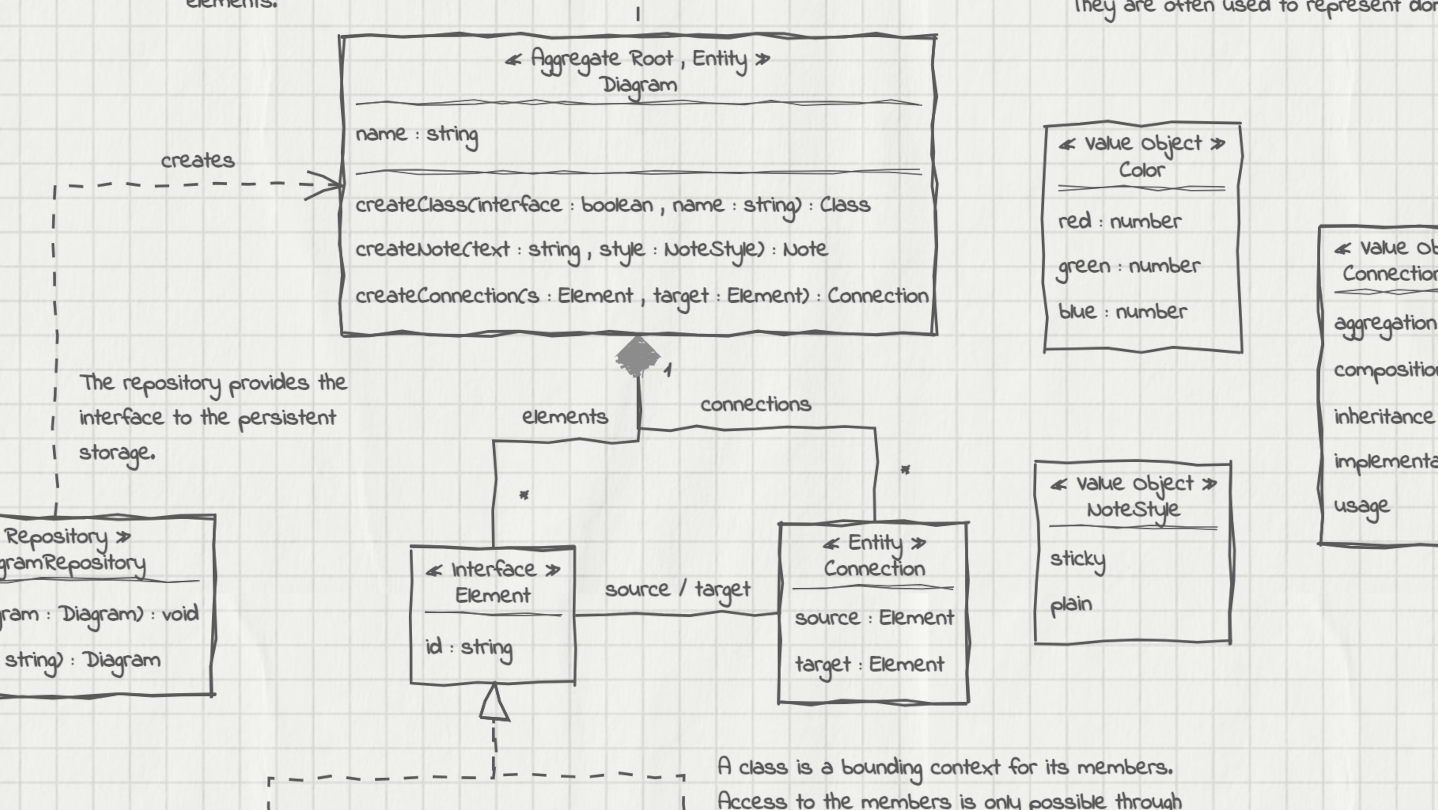 elements.
They are often used to represent
« Aggregate Root , Entity »
Diagram
name : string
createClass(interface : boolean , name : string) : Class
createNote(text : string , style : NoteStyle) : Note
createConnection(s : Element , target : Element) : Connection
creates
« Value Object »
Color
red : number
green : number
blue : number
« Value
Connection
aggregation
composition
inheritance
usage
The repository provides the
interface to the persistent
storage.
1
elements
connections
*
*
« Value Object »
NoteStyle
sticky
plain
Repository »
gramRepository
gram : Diagram) : void
string) : Diagram
« Interface »
Element
id : string
source / target
« Entity »
Connection
source : Element
target : Element
A class is a bounding context for its members.
Access to the members is only possible through